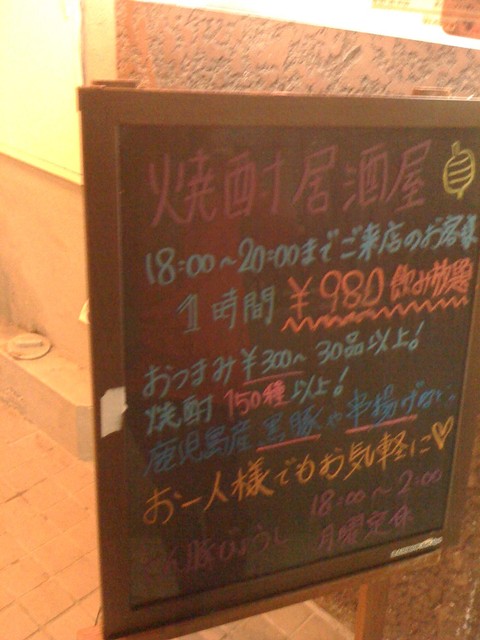 焼酎居酒屋
18:00～20:00までご来店のお客様
1時間 ¥980 飲み放題
おつまみ¥300～30品以上!
焼酎 150種以上!
鹿児島産 黒豚や串揚げ
お一人様でもお気軽に♡
豚びょうし 18:00～2:00
月曜定休